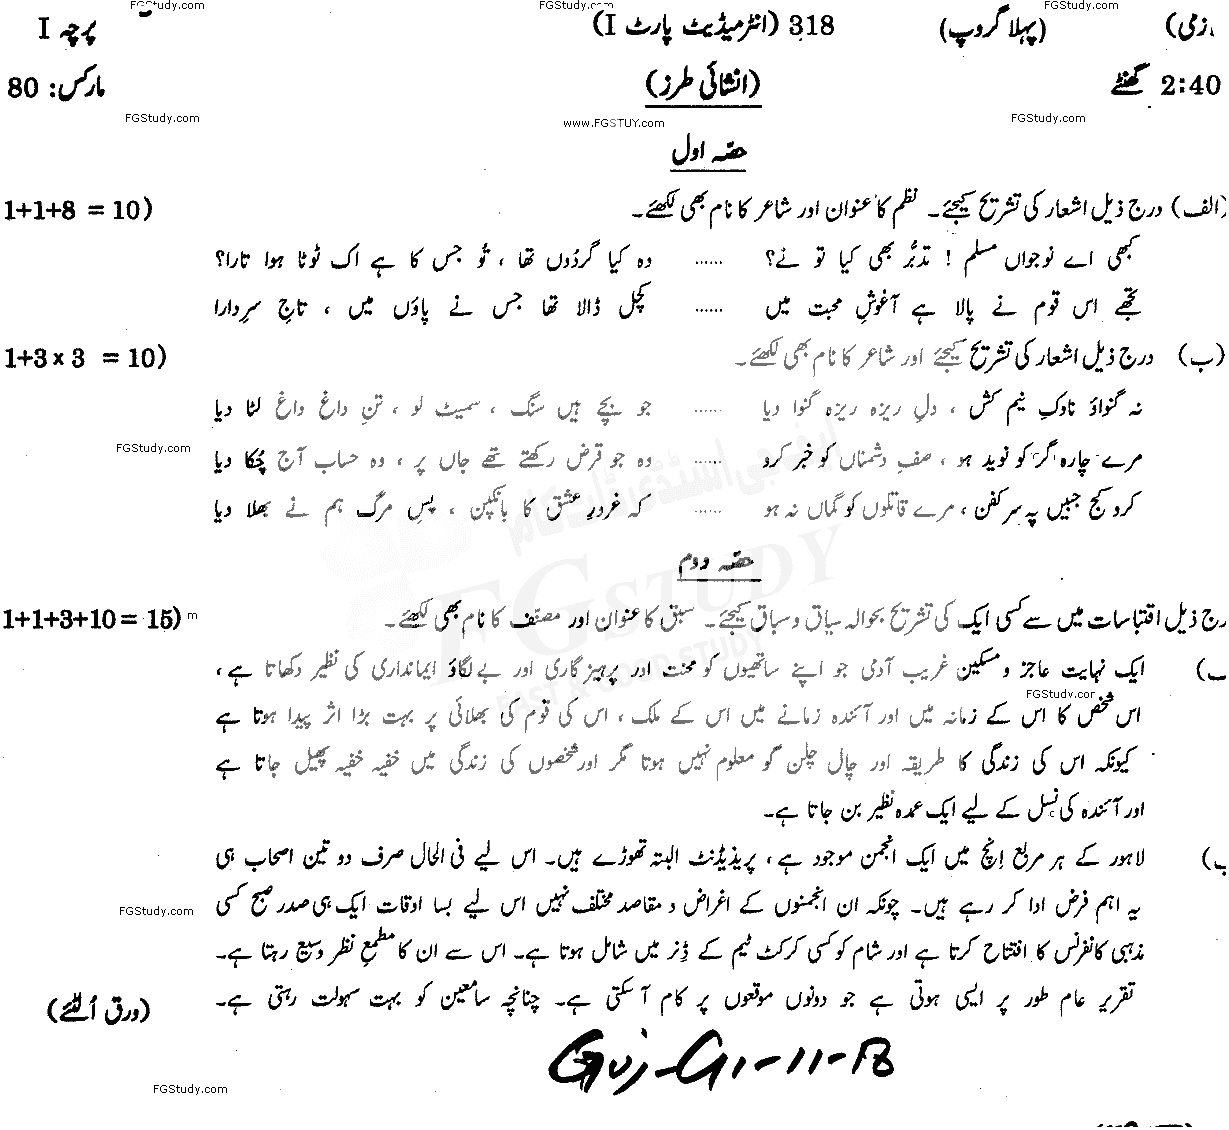 FGStudy.com FGStudy.com FGStudy.com
پرچہ I (انٹرمیڈیٹ پارٹ I) 318 (پہلا گروپ) زمی)
2:40 گھنٹے (انشائی طرز) مارکس: 80
FGStudy.com www.FGSTUY.com FGStudy.com
حصّہ اول
(الف) درج ذیل اشعار کی تشریح کیجئے۔ نظم کا عنوان اور شاعر کا نام بھی لکھئے۔ 1+1+8 = 10)
کبھی اے نوجواں مسلم ! تدبّر بھی کیا تو نے؟ ...... وہ کیا گردُوں تھا ، تُو جس کا ہے اک ٹوٹا ہوا تارا؟
تجھے اس قوم نے پالا ہے آغوشِ محبت میں ...... کچل ڈالا تھا جس نے پاؤں میں ، تاجِ سرِدارا
(ب) درج ذیل اشعار کی تشریح کیجئے اور شاعر کا نام بھی لکھئے۔ 1+3×3 = 10)
نہ گنواؤ ناوکِ نیم کش ، دلِ ریزہ ریزہ گنوا دیا ...... جو بچے ہیں سنگ ، سمیٹ لو ، تنِ داغ داغ لٹا دیا
FGStudy.com
مرے چارہ گر کو نوید ہو ، صفِ دشمناں کو خبر کرو ...... وہ جو قرض رکھتے تھے جاں پر ، وہ حساب آج چُکا دیا
کرو کج جبیں پہ سرِ کفن ، مرے قاتلوں کو گماں نہ ہو ...... کہ غرورِ عشق کا بانکپن ، پسِ مرگ ہم نے بھلا دیا
ایف جی اسٹڈی ڈاٹ کام
FGSTUDY
FAST & GOOD STUDY
حصّہ دوم
رج ذیل اقتباسات میں سے کسی ایک کی تشریح بحوالہ سیاق و سباق کیجئے۔ سبق کا عنوان اور مصنّف کا نام بھی لکھئے۔ 1+1+3+10 = 15) m
ایک نہایت عاجز و مسکین غریب آدمی جو اپنے ساتھیوں کو محنت اور پرہیزگاری اور بے لگاؤ ایمانداری کی نظیر دکھاتا ہے،
FGStudy.cor
اس شخص کا اس کے زمانہ میں اور آئندہ زمانے میں اس کے ملک ، اس کی قوم کی بھلائی پر بہت بڑا اثر پیدا ہوتا ہے
کیونکہ اس کی زندگی کا طریقہ اور چال چلن گو معلوم نہیں ہوتا مگر اور شخصوں کی زندگی میں خفیہ خفیہ پھیل جاتا ہے
اور آئندہ کی نسل کے لیے ایک عمدہ نظیر بن جاتا ہے۔
لاہور کے ہر مربع اِنچ میں ایک انجمن موجود ہے ، پریذیڈنٹ البتہ تھوڑے ہیں۔ اس لیے فی الحال صرف دو تین اصحاب ہی
یہ اہم فرض ادا کر رہے ہیں۔ چونکہ ان انجمنوں کے اغراض و مقاصد مختلف نہیں اس لیے بسا اوقات ایک ہی صدر صبح کسی
FGStudy.com
مذہبی کانفرنس کا افتتاح کرتا ہے اور شام کو کسی کرکٹ ٹیم کے ڈنر میں شامل ہوتا ہے۔ اس سے ان کا مطمعِ نظر وسیع رہتا ہے۔
تقریر عام طور پر ایسی ہوتی ہے جو دونوں موقعوں پر کام آ سکتی ہے۔ چنانچہ سامعین کو بہت سہولت رہتی ہے۔
(ورق اُلٹئے)
Guj-G1-11-18
FGStudy.com